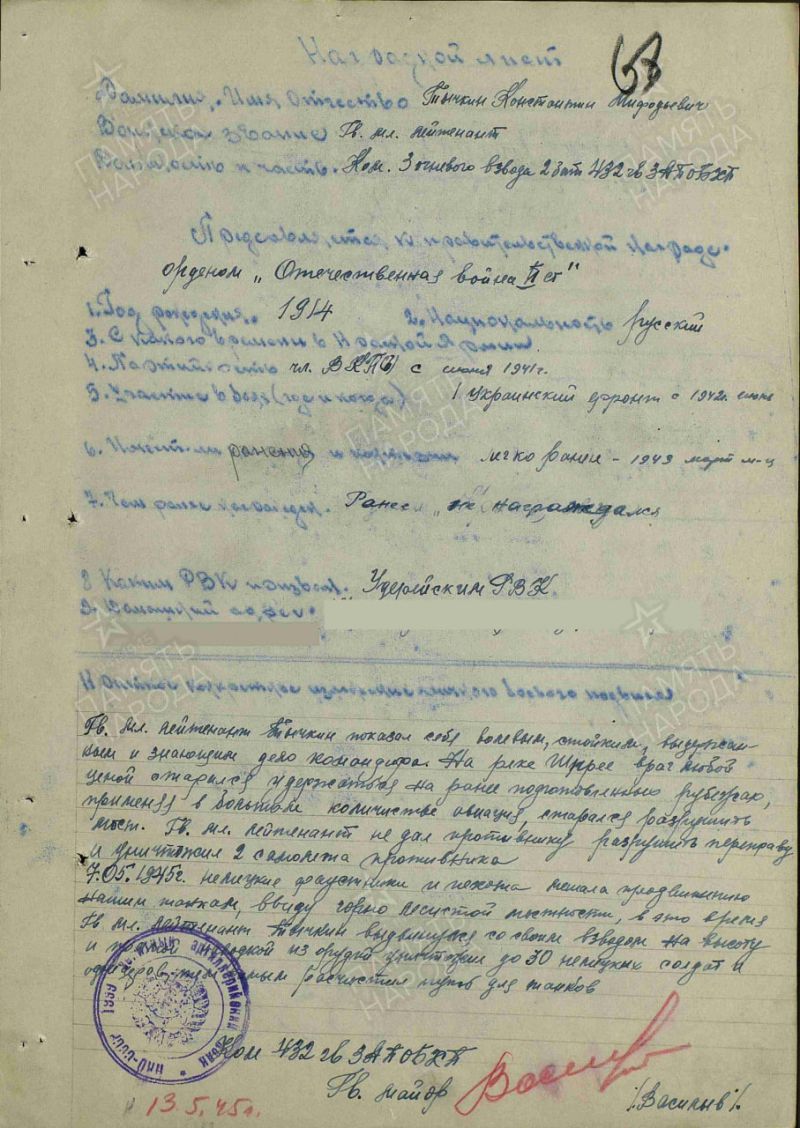 Наградной лист
67
Фамилия, Имя Отчество Тычкин Константин Мифодьевич
Воинское звание Гв. мл. лейтенант
Должность и часть. Ком. 3 огневого взвода 2 бат 432 гв ЗАП ОБХП
Представляется к правительственной награде.
орденом „Отечественная война II ст"
1. Год рождения. 1914 2. Национальность русский
3. С какого времени в Красной Армии
4. Партийность чл. ВКПб с июня 1941г.
5. Участие в боях (где и когда) 1 Украинский фронт с 1942г. июнь
6. Имеет ли ранения и контузии легко ранен - 1943 март м-ц
7. Чем ранее награжден. Ранее „не" награждался
8 Каким РВК призван. Удерейским РВК
9. Домашний адрес.
Краткое конкретное изложение личного боевого подвига
Гв. мл. лейтенант Тычкин показал себя волевым, стойким, выдержан-
ным и знающим дело командира. На реке Шпрее враг любой
ценой старался удержаться на ранее подготовленных рубежах,
применяя в большом количестве авиацию, старался разрушить
мост. Гв. мл. лейтенант не дал противнику разрушить переправу
и уничтожил 2 самолета противника
7.05.1945г. немецкие фаустники и пехота мешала продвижению
нашим танкам, ввиду горно лесистой местности, в это время
Гв. мл. лейтенант Тычкин выдвинулся со своим взводом на высоту
и прямой наводкой из орудий уничтожил до 30 немецких солдат и
офицеров тем самым расчистил путь для танков
Ком 432 гв ЗАП ОБХП
Гв. майор
/Васильев/.
13.5.45г.
НКО-СССР
ПАМЯТЬ НАРОДА